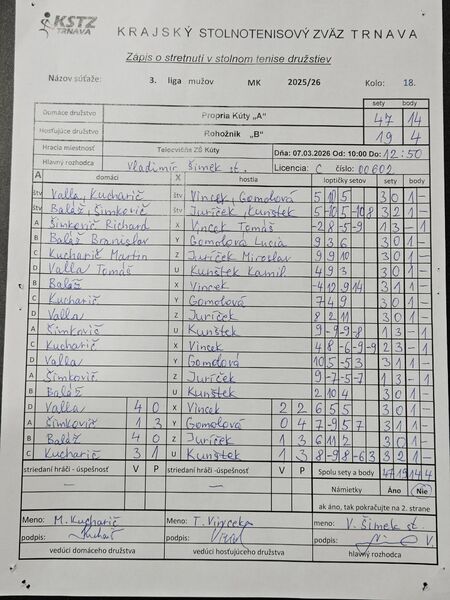 KSTZ
TRNAVA
KRAJSKÝ STOLNOTENISOVÝ ZVÄZ TRNAVA
Zápis o stretnutí v stolnom tenise družstiev
Názov súťaže: 3. liga mužov MK 2025/26 Kolo: 18.
sety body
Domáce družstvo Propria Kúty „A“ 47 14
Hosťujúce družstvo Rohožník „B“ 19 4
Hracia miestnosť Telocvičňa ZŠ Kúty Dňa: 07.03.2026 Od: 10:00 Do: 12:50
Hlavný rozhodca Vladimír Šimek st. Licencia: C číslo 00602
A domáci X hostia loptičky setov sety body
štv Valla, Kucharič štv Vincek, Gomolová 5 10 5 3 0 1 -
štv Baláž, Šimkovič štv Juríček, Kunštek 5 -10 5 -10 8 3 2 1 -
A Šimkovič Richard X Vincek Tomáš -2 8 -5 -9 1 3 - 1
B Baláž Branislav Y Gomolová Lucia 9 3 6 3 0 1 -
C Kucharič Martin Z Juríček Miroslav 9 9 10 3 0 1 -
D Valla Tomáš U Kunštek Kamil 4 9 3 3 0 1 -
B Baláž X Vincek -4 12 9 14 3 1 1 -
C Kucharič Y Gomolová 7 4 9 3 0 1 -
D Valla Z Juríček 8 2 11 3 0 1 -
A Šimkovič U Kunštek 9 -9 -9 -8 1 3 - 1
C Kucharič X Vincek 4 8 -6 -9 -9 2 3 - 1
D Valla Y Gomolová 10 5 -5 3 3 1 1 -
A Šimkovič Z Juríček 9 -7 -5 -7 1 3 - 1
B Baláž U Kunštek 2 10 4 3 0 1 -
D Valla 4 0 X Vincek 2 2 6 5 5 3 0 1 -
A Šimkovič 1 3 Y Gomolová 0 4 7 -9 5 7 3 1 1 -
B Baláž 4 0 Z Juríček 1 3 6 11 2 3 0 1 -
C Kucharič 3 1 U Kunštek 1 3 8 -9 8 -6 3 3 2 1 -
striedaní hráči - úspešnosť V P striedaní hráči - úspešnosť V P Spolu sety a body 47 19 14 4
— — Námietky Áno Nie
ak áno, tak pokračujte na 2. strane
Meno: M. Kucharič Meno: T. Vincek Meno: V. Šimek st.
podpis: podpis: podpis:
vedúci domáceho družstva vedúci hosťujúceho družstva hlavný rozhodca